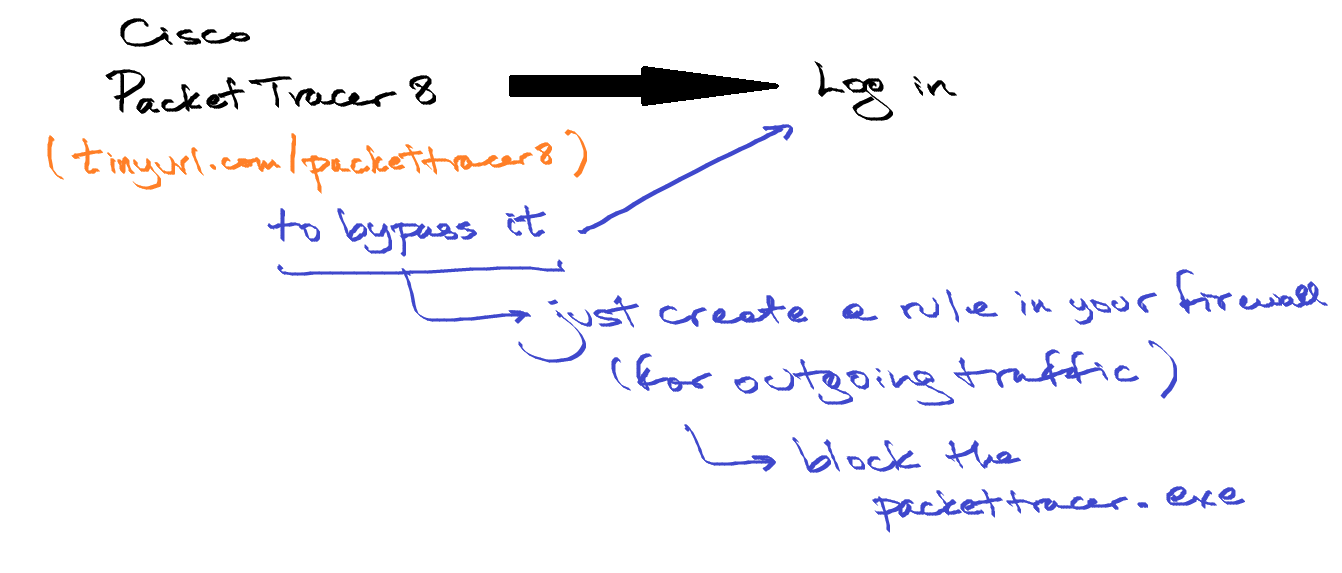 Cisco
Packet Tracer 8
Log in
(tinyurl.com/packettracer8)
to bypass it
just create a rule in your firewall
(for outgoing traffic)
block the
packettracer.exe